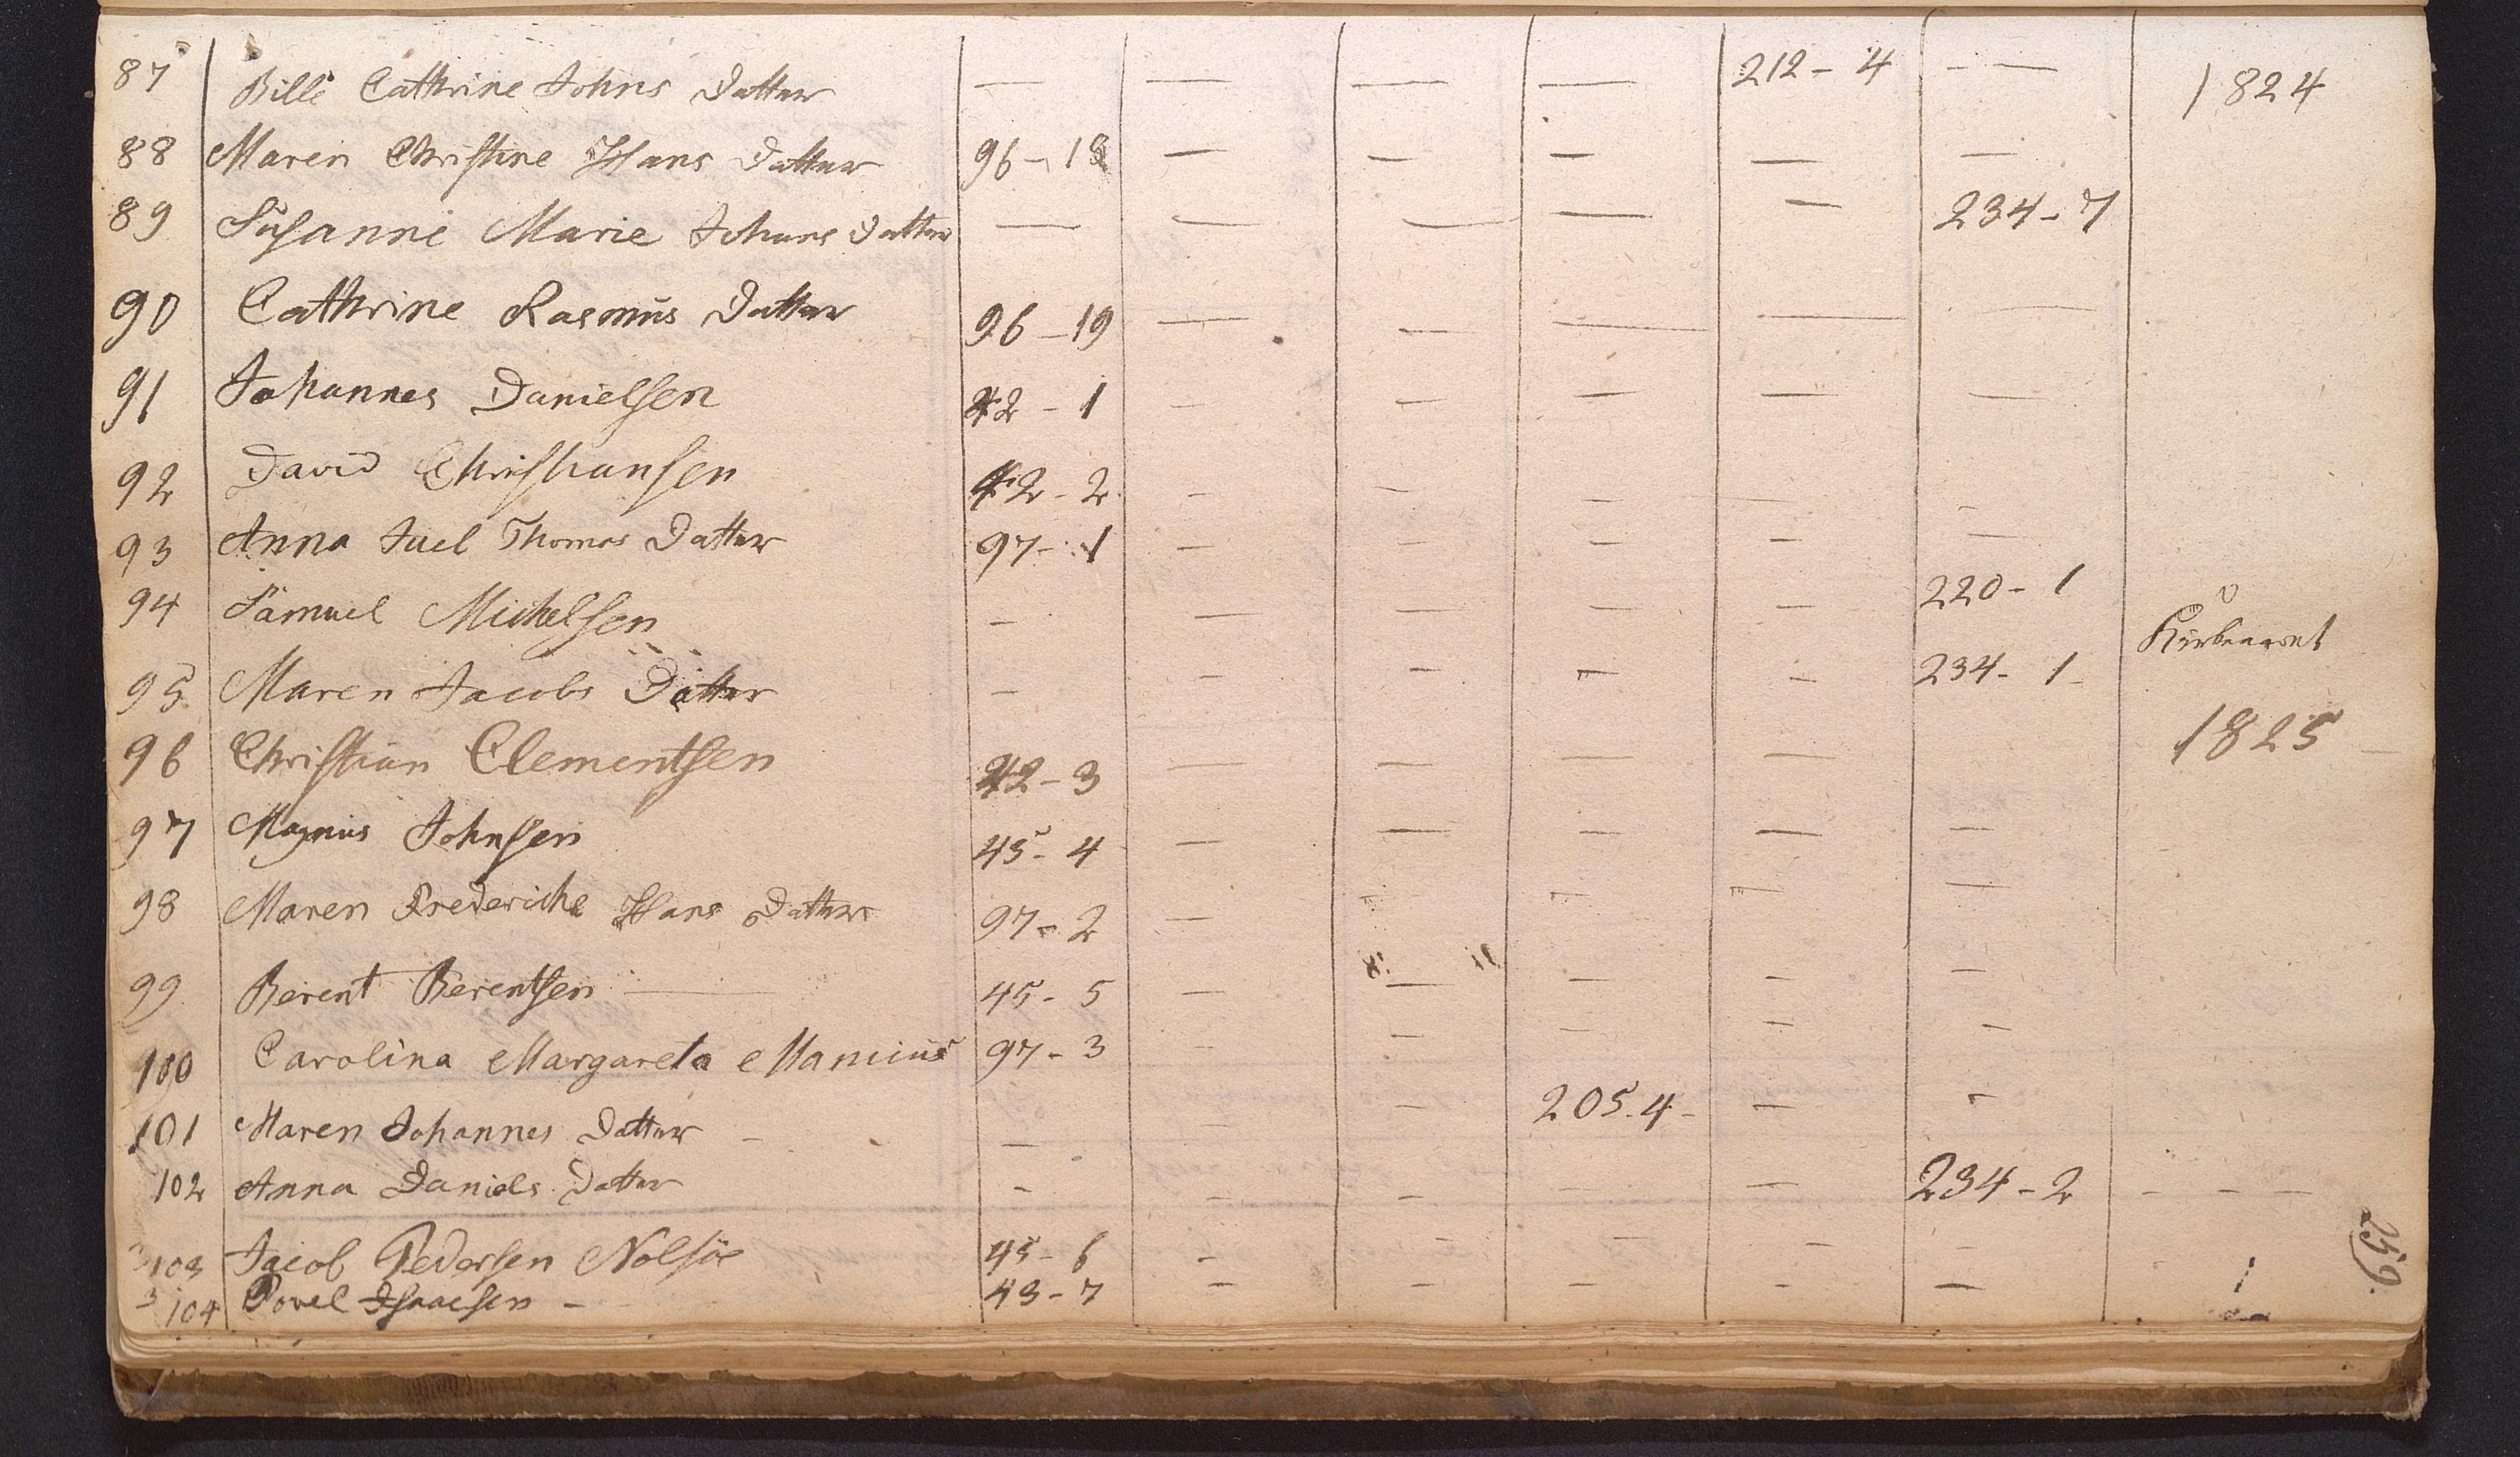 87 Bille Cathrine Johns Datter — — — — 212 - 4 — 1824
88 Maren Christine Hans Datter 96 - 18 — — — — —
89 Susanne Marie Johans Datter — — — — — 234 - 7
90 Cathrine Rasmus Datter 96 - 19 — — — — —
91 Johannes Danielsen 42 - 1 — — — — —
92 David Christiansen 42 - 2 — — — — —
93 Anna Juel Thomas Datter 97 - 1 — — — — —
94 Samuel Michelsen — — — — — 220 - 1 Kirkeaaret
95 Maren Jacobs Datter — — — — — 234 - 1
96 Christian Clementsen 42 - 3 — — — — 1825
97 Magnus Johnsen 45 - 4 — — — — —
98 Maren Frederiche Hans Datter 97 - 2 — — — — —
99 Berent Berentsen — 45 - 5 — — — — —
100 Carolina Margareta 97 - 3 — — — — —
101 Maren Johannes Datter — — — — 205 - 4 — —
102 Anna Daniels Datter — — — — — 234 - 2 — — —
103 Jacob Pedersen Nolsöe 45 - 6 — — — — —
104 Povel Isaacsen — 45 - 7 — — — — —
259.